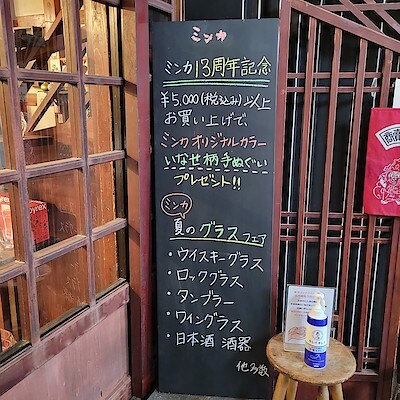 ミンカ
ミンカ13周年記念
¥5,000(税込み)以上
お買い上げで、
ミンカオリジナルカラー
いなせ柄手ぬぐい
プレゼント!!
ミンカ
夏のグラスフェア
・ウイスキーグラス
・ロックグラス
・タンブラー
・ワイングラス
・日本酒 酒器
他多数